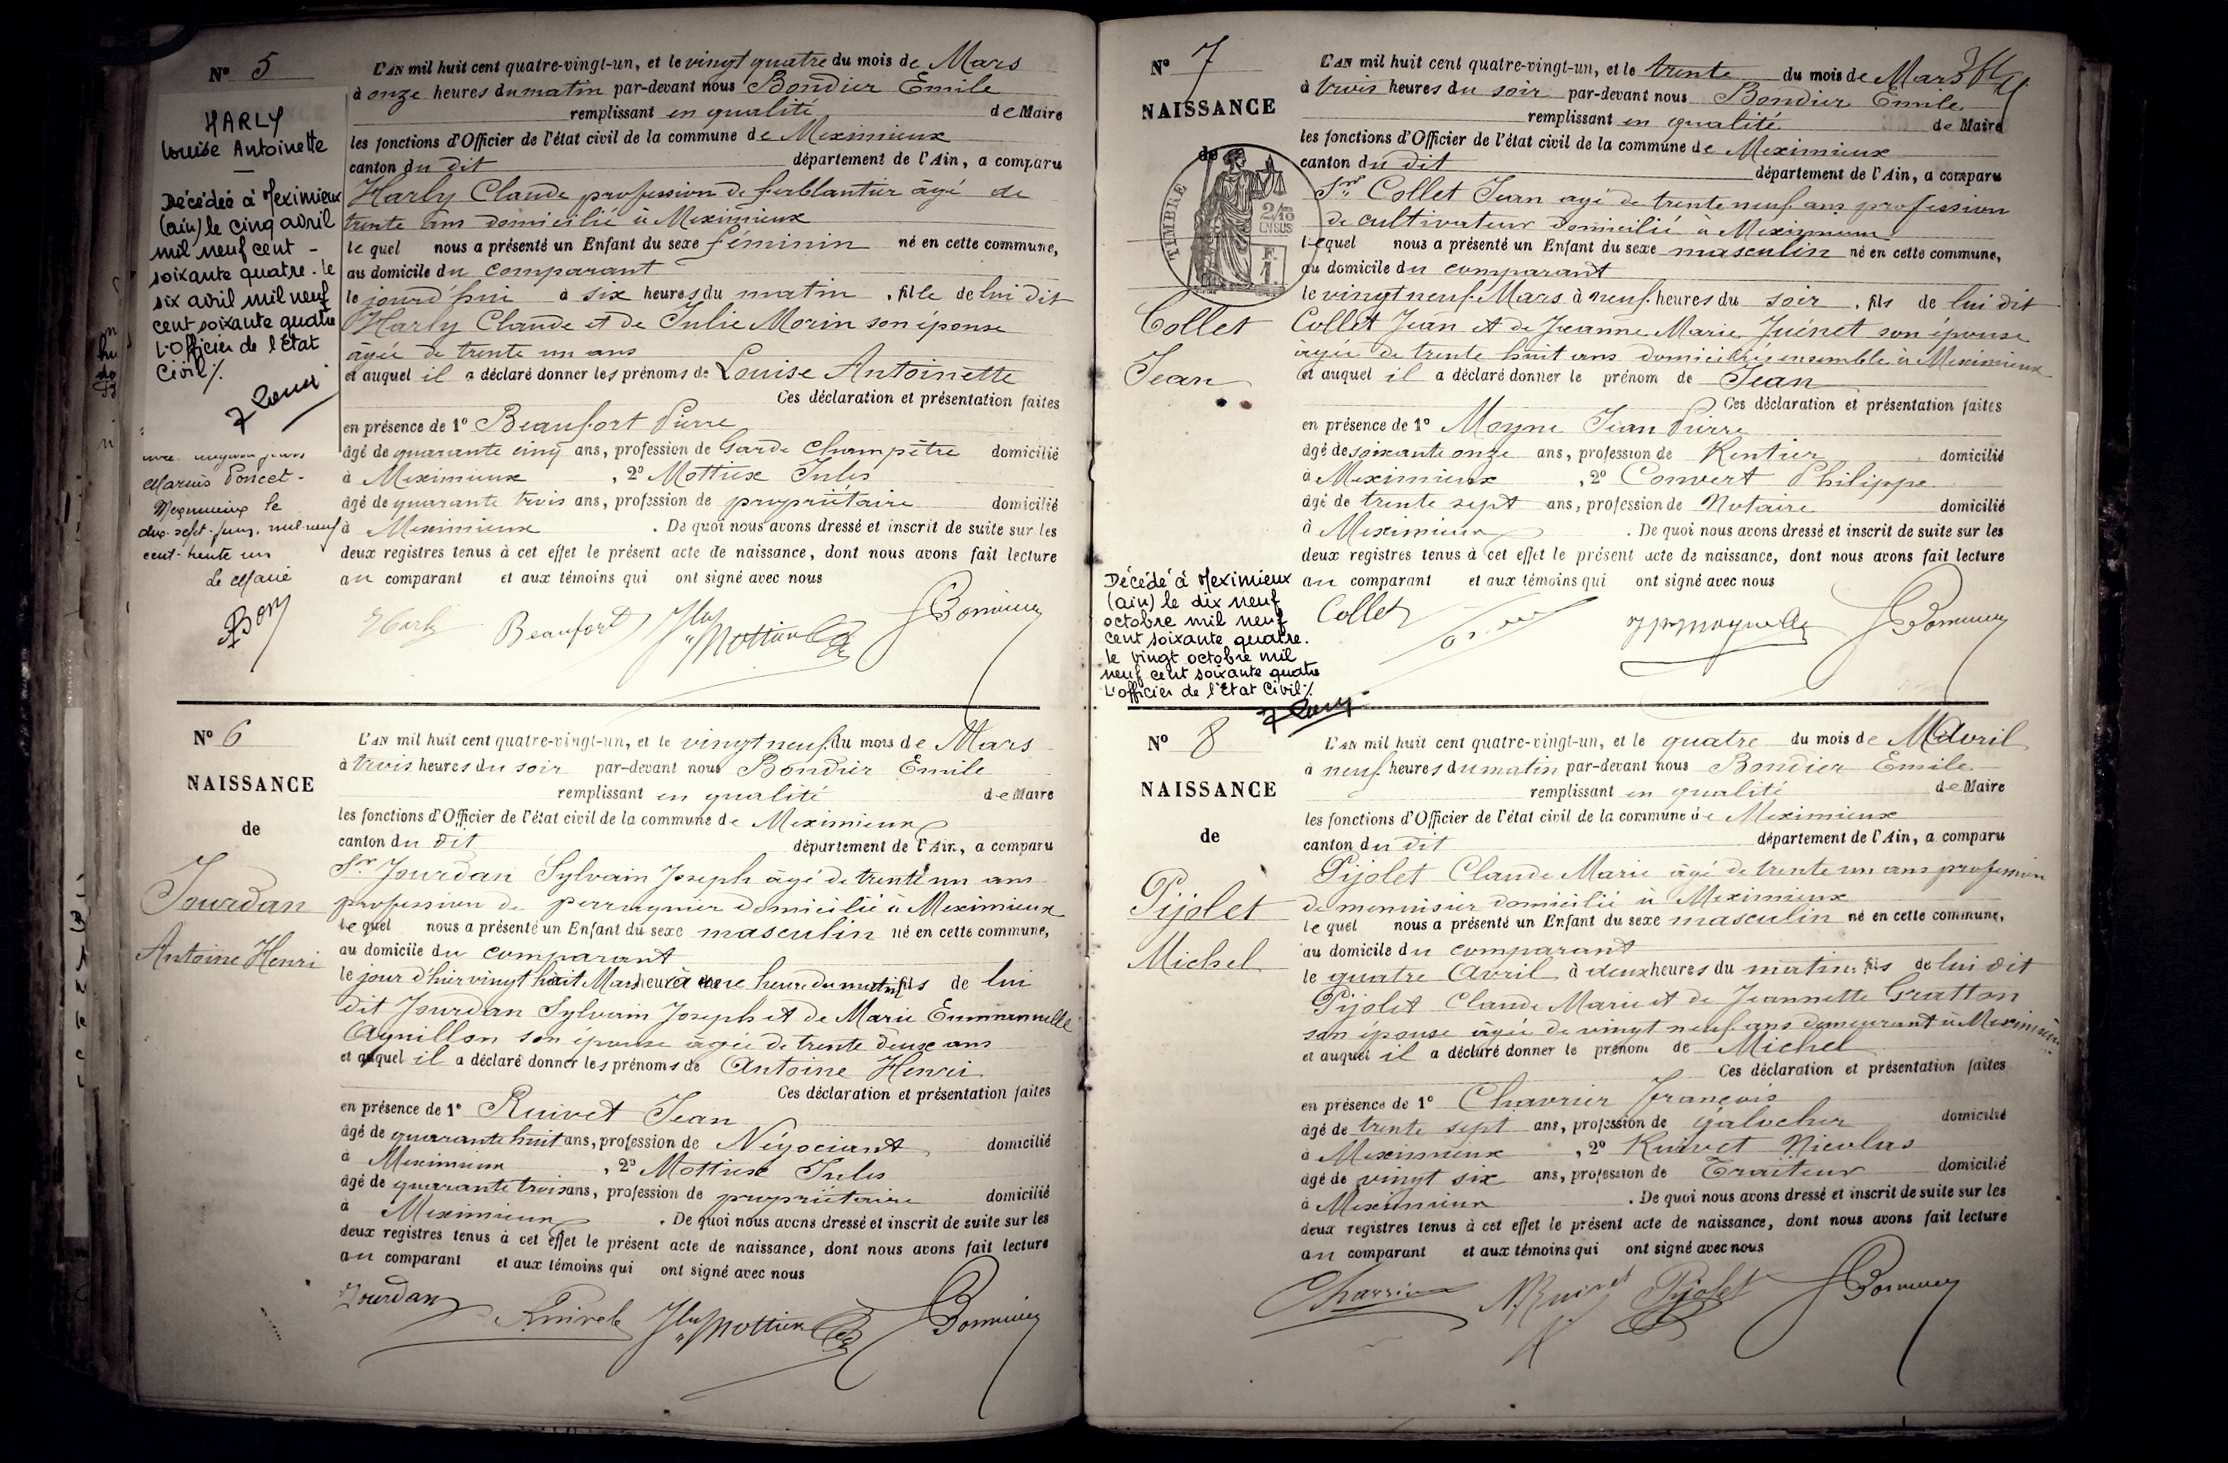 N° 5
HARLY
Louise Antoinette
Décédée à Meximieux
(ain) le cinq avril
mil neuf cent -
soixante quatre. le
six avril mil neuf
cent soixante quatre
L'Officier de l'Etat
Civil %.
Marius Poncet -
Meximieux le
dix-sept juin mil neuf
cent-trente un
Le Maire
L'AN mil huit cent quatre-vingt-un, et le vingt quatre du mois de Mars
à onze heures du matin par-devant nous Bondier Emile
remplissant en qualité de Maire
les fonctions d'Officier de l'état civil de la commune de Meximieux
canton du dit département de l'Ain, a comparu
Harly Claude profession de ferblantier âgé de
trente ans domicilié à Meximieux
le quel nous a présenté un Enfant du sexe féminin né en cette commune,
au domicile du comparant
le jourd'hui à six heures du matin , fille de lui dit
Harly Claude et de Julie Morin son épouse
âgée de trente un ans
et auquel il a déclaré donner les prénoms de Louise Antoinette
Ces déclaration et présentation faites
en présence de 1° Beaufort Pierre
âgé de quarante cinq ans, profession de Garde Champêtre domicilié
à Meximieux , 2° Mottieux Jules
âgé de quarante trois ans, profession de propriétaire domicilié
à Meximieux . De quoi nous avons dressé et inscrit de suite sur les
deux registres tenus à cet effet le présent acte de naissance, dont nous avons fait lecture
au comparant et aux témoins qui ont signé avec nous
Harly Beaufort
N° 6
NAISSANCE
de
Jourdan
Antoine Henri
L'AN mil huit cent quatre-vingt-un, et le vingt neuf du mois de Mars
à trois heures du soir par-devant nous Bondier Emile
remplissant en qualité de Maire
les fonctions d'Officier de l'état civil de la commune de Meximieux
canton du dit département de l'Ain, a comparu
Sr Jourdan Sylvain Joseph âgé de trente un ans
profession de perruquier domicilié à Meximieux
le quel nous a présenté un Enfant du sexe masculin né en cette commune,
au domicile du comparant
le jour d'hier vingt huit Mars à une heure du matin fils de lui
dit Jourdan Sylvain Joseph et de Marie Emmanuelle
son épouse âgée de trente deux ans
et auquel il a déclaré donner les prénoms de Antoine Henri
Ces déclaration et présentation faites
en présence de 1° Ruivet Jean
âgé de quarante huit ans, profession de Négociant domicilié
à Meximieux , 2° Mottieux Jules
âgé de quarante trois ans, profession de propriétaire domicilié
à Meximieux . De quoi nous avons dressé et inscrit de suite sur les
deux registres tenus à cet effet le présent acte de naissance, dont nous avons fait lecture
au comparant et aux témoins qui ont signé avec nous
Jourdan
N° 7
NAISSANCE
de
TIMBRE
2/10
EN SUS
F.
1
Collet
Jean
Décédé à Meximieux
(ain) le dix neuf
octobre mil neuf
cent soixante quatre.
le vingt octobre mil
neuf cent soixante quatre
L'officier de l'Etat Civil %.
L'AN mil huit cent quatre-vingt-un, et le trente du mois de Mars
à trois heures du soir par-devant nous Bondier Emile
remplissant en qualité de Maire
les fonctions d'Officier de l'état civil de la commune de Meximieux
canton du dit département de l'Ain, a comparu
Sr Collet Jean agé de trente neuf ans profession
de cultivateur domicilié à Meximieux
lequel nous a présenté un Enfant du sexe masculin né en cette commune,
au domicile du comparant
le vingt neuf Mars à neuf heures du soir , fils de lui dit
Collet Jean et de Jeanne Marie Juénet son épouse
âgée de trente huit ans domiciliés ensemble à Meximieux
et auquel il a déclaré donner le prénom de Jean
Ces déclaration et présentation faites
en présence de 1° Moyne Jean Pierre
âgé de soixante onze ans, profession de Rentier domicilié
à Meximieux , 2° Convert Philippe
âgé de trente sept ans, profession de Notaire domicilié
à Meximieux . De quoi nous avons dressé et inscrit de suite sur les
deux registres tenus à cet effet le présent acte de naissance, dont nous avons fait lecture
au comparant et aux témoins qui ont signé avec nous
Collet
N° 8
NAISSANCE
de
Pijolet
Michel
L'AN mil huit cent quatre-vingt-un, et le quatre du mois de Avril
à neuf heures du matin par-devant nous Bondier Emile
remplissant en qualité de Maire
les fonctions d'Officier de l'état civil de la commune de Meximieux
canton du dit département de l'Ain, a comparu
Pijolet Claude Marie âgé de trente un ans profession
de menuisier domicilié à Meximieux
le quel nous a présenté un Enfant du sexe masculin né en cette commune,
au domicile du comparant
le quatre Avril à deux heures du matin, fils de lui dit
Pijolet Claude Marie et de Jeannette Gratton
son épouse âgée de vingt neuf ans demeurant à Meximieux
et auquel il a déclaré donner le prénom de Michel
Ces déclaration et présentation faites
en présence de 1° Chavrier François
âgé de trente sept ans, profession de galocher domicilié
à Meximieux , 2° Ruivet Nicolas
âgé de vingt six ans, profession de Traiteur domicilié
à Meximieux . De quoi nous avons dressé et inscrit de suite sur les
deux registres tenus à cet effet le présent acte de naissance, dont nous avons fait lecture
au comparant et aux témoins qui ont signé avec nous
N. Ruivet Pijolet